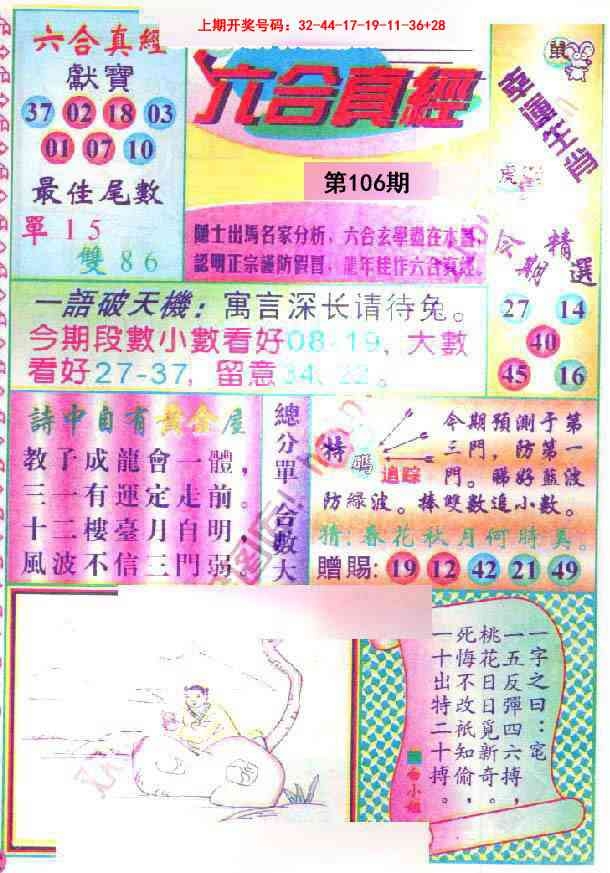 上期开奖号码：32-44-17-19-11-36+28
六合真經
獻寶
37 02 18 03
01 07 10
最佳尾數
單 1 5
雙 8 6
六合真經
第106期
隱士出馬名家分析，六合玄學盡在本書，
認明正宗謹防假冒，龍年佳作六合真經。
鼠
幸運生肖
虎
今期
精選
27 14
40
45 16
一語破天機：寓言深长请待兔。
今期段數小數看好08-19，大數
看好27-37，留意34、22。
詩中自有黃金屋
教子成龍會一體，
三一有運定走前。
十二樓臺月自明，
風波不信三門弱。
總分單
合數大
特
碼
追踪
今期預測于第
三門，防第一
門。睇好藍波
防綠波。捧雙數追小數。
猜：春花秋月何時美。
贈賜：19 12 42 21 49
一字之曰：宅
一五反彈四六搏，
桃花日日覓新奇。
死悔不改祇知偷，
一十出特二十搏。
白小姐